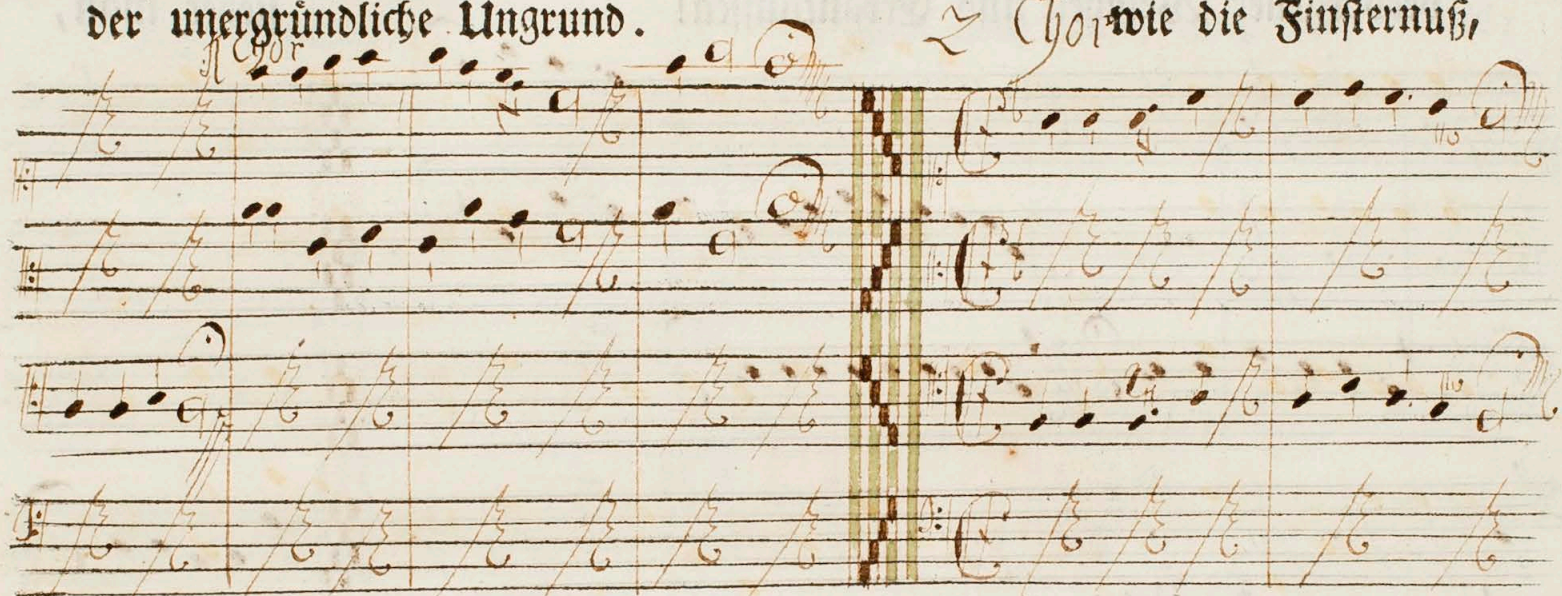 der unergründliche Ungrund. 2 Chor wie die Finsternuß,
Chor